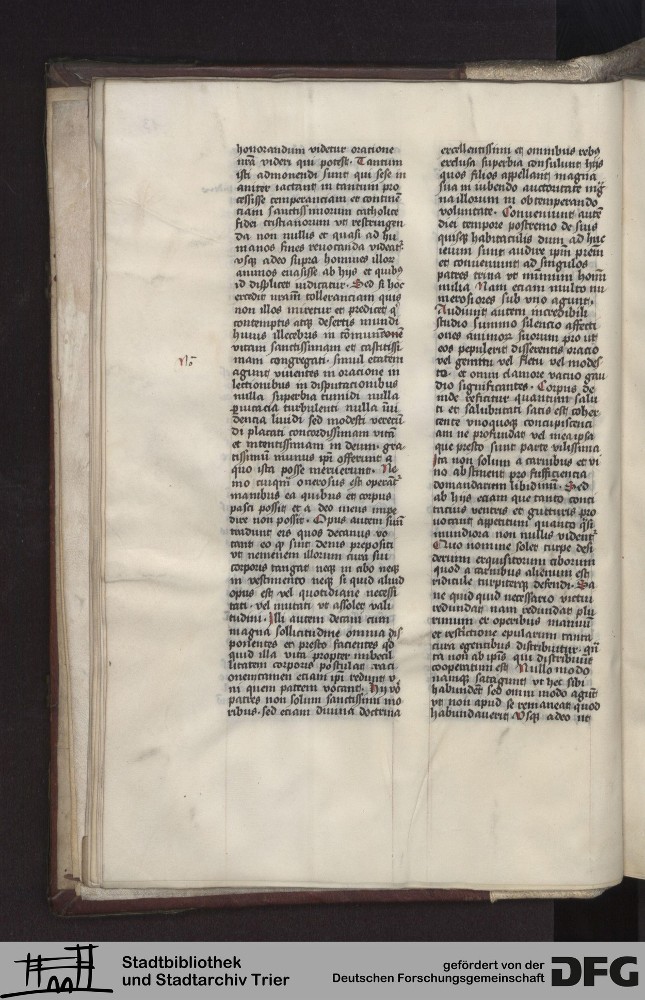 honorandum videtur oratione
nrā videri qui potest. Tantum
isti admonendi sunt qui sese in
aniter iactant in tantum pro
cessisse temperanciam et continē
ciam sanctissimorum catholice
fidei cristianorum ut restringen
da non nullis et quasi ad hu
manos fines revocanda videat᷑
usq adeo supra homines illor
animos euasisse ab hijs et quibꝫ
id displicet iudicatur. Sed si hoc
excedit nram̄ tolleranciam quis
non illos miretur et predicet q̇
contemptis atqꝫ desertis mundi
huius illecebris in cōmunionē
vitam sanctissimam et castissi
mam congregati. simul etatem
agunt viuentes in oratione in
lectionibus in disputacionibus
nulla superbia tumidi nulla
ꝑuicacia turbulenti nulla īui
dencia liuidi sed modesti verecū
di placati concordissimam vitā
et intentissimam in deum. gra
tissimū munus ipi offerunt a
quo ista posse meruerunt. Ne
mo cuiqm̄ onerosus est operāt᷑
manibus ea quibus et corpus
pasci possit et a deo mens impe
dire non possit. Opus autem suū
tradunt eis quos decanos vo
cant eo ꝙ sint denis prepositi
ut neminem illorum cura sui
corporis tangat neqꝫ in cibo neqꝫ
in vestimento neqꝫ si quid aliud
opus est vel quotidiane necessi
tati. vel mutati ut assolet vali
tudini. Illi autem decani cum
magna sollicitudine omnia dis
ponentes et presto facientes qd
quid illa vita propter imbecil
litatem corporis postulat raci
onem tamen etiam ipi reddunt v
ni quem patrem vocant. Hij vo̊
patres non solum sanctissimi mo
ribus. sed etiam diuina doctrina
No
excellentissimi et omnibus rebꝫ
excelsi superbia consulunt hijs
quos filios appellant magna
sua in iubendo auctoritate mg̅
na illorum in obtemperando
voluntate. Conueniunt autē
diei tempore postremo de suis
quisqꝫ habitaculis dum adhuc
ieiuni sunt audire ipm̄ prēm
et conueniunt ad singulos
patres trina ut minimum homī
milia Nam etiam multo nu
merosiores sub uno agunt.
Audiunt autem incredibili
studio summo silencio affecti
ones animor suorum pro ut
eos pepulerit disserentis oratio
vel gemitu vel fletu vel modes
to. et omni clamore vacuo gau
dio significantes. Corpus de
inde reficitur quantum salu
ti et salubritati satis est coher
cente unoquoqꝫ concupiscenci
am ne profundat vel in ea ipsa
que presto sunt parte vilissima
Ita non solum a carnibus et vi
no abstinent pro sufficientia
domandarum libidinum. Sed
ab hijs etiam que tanto conci
tacius ventris et gutturis pro
uocant appetitum quanto q̄si
mundiora non nullis vident᷑
Quo nomine solet turpe desi
derium exquisitorum ciborum
quod a carnibus alienum est
ridicule turpiterqꝫ defendi. Sa
ne quidquid necessario victui
redundat nam redundat plu
rimum ex operibus manuū
et restrictione epularum tanta
cura egentibus distribuitur. qn̄
ta non ab ipis qui distribuūt
cooperatum est Nullo modo
namqꝫ satagunt ut hec sibi
habundent sed omni modo agunt
ut non apud se remaneat quod
habundauerit Usqꝫ adeo ut
Stadtbibliothek
und Stadtarchiv Trier
gefördert von der
Deutschen Forschungsgemeinschaft
DFG